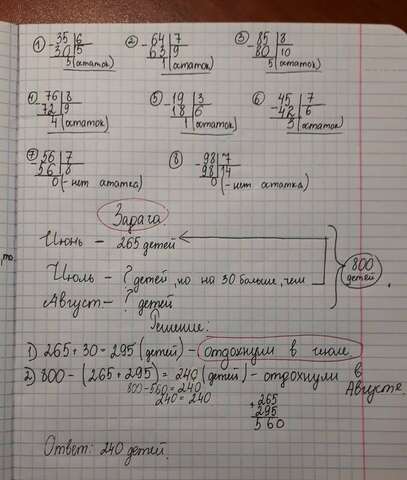 ① -35|6 ② -64|7 ③ -85|8
30|5 63|9 80|10
5 (остаток) 1 (остаток) 5 (остаток)
④ -76|8 ⑤ -19|3 ⑥ -45|7
72|9 18|6 42|6
4 (остаток) 1 (остаток) 3 (остаток)
⑦ -56|7 ⑧ -98|7
56|8 98|14
0 (-нет остатка) 0 (-нет остатка)
Задача.
Июнь - 265 детей
800 детей
Июль - ? детей, но на 30 больше, чем
Август - ? детей
Решение:
1) 265 + 30 = 295 (детей) - отдохнули в июле
2) 800 - (265 + 295) = 240 (детей) - отдохнули в Августе.
800 - 560 = 240
240 = 240
+265
295
560
Ответ: 240 детей.